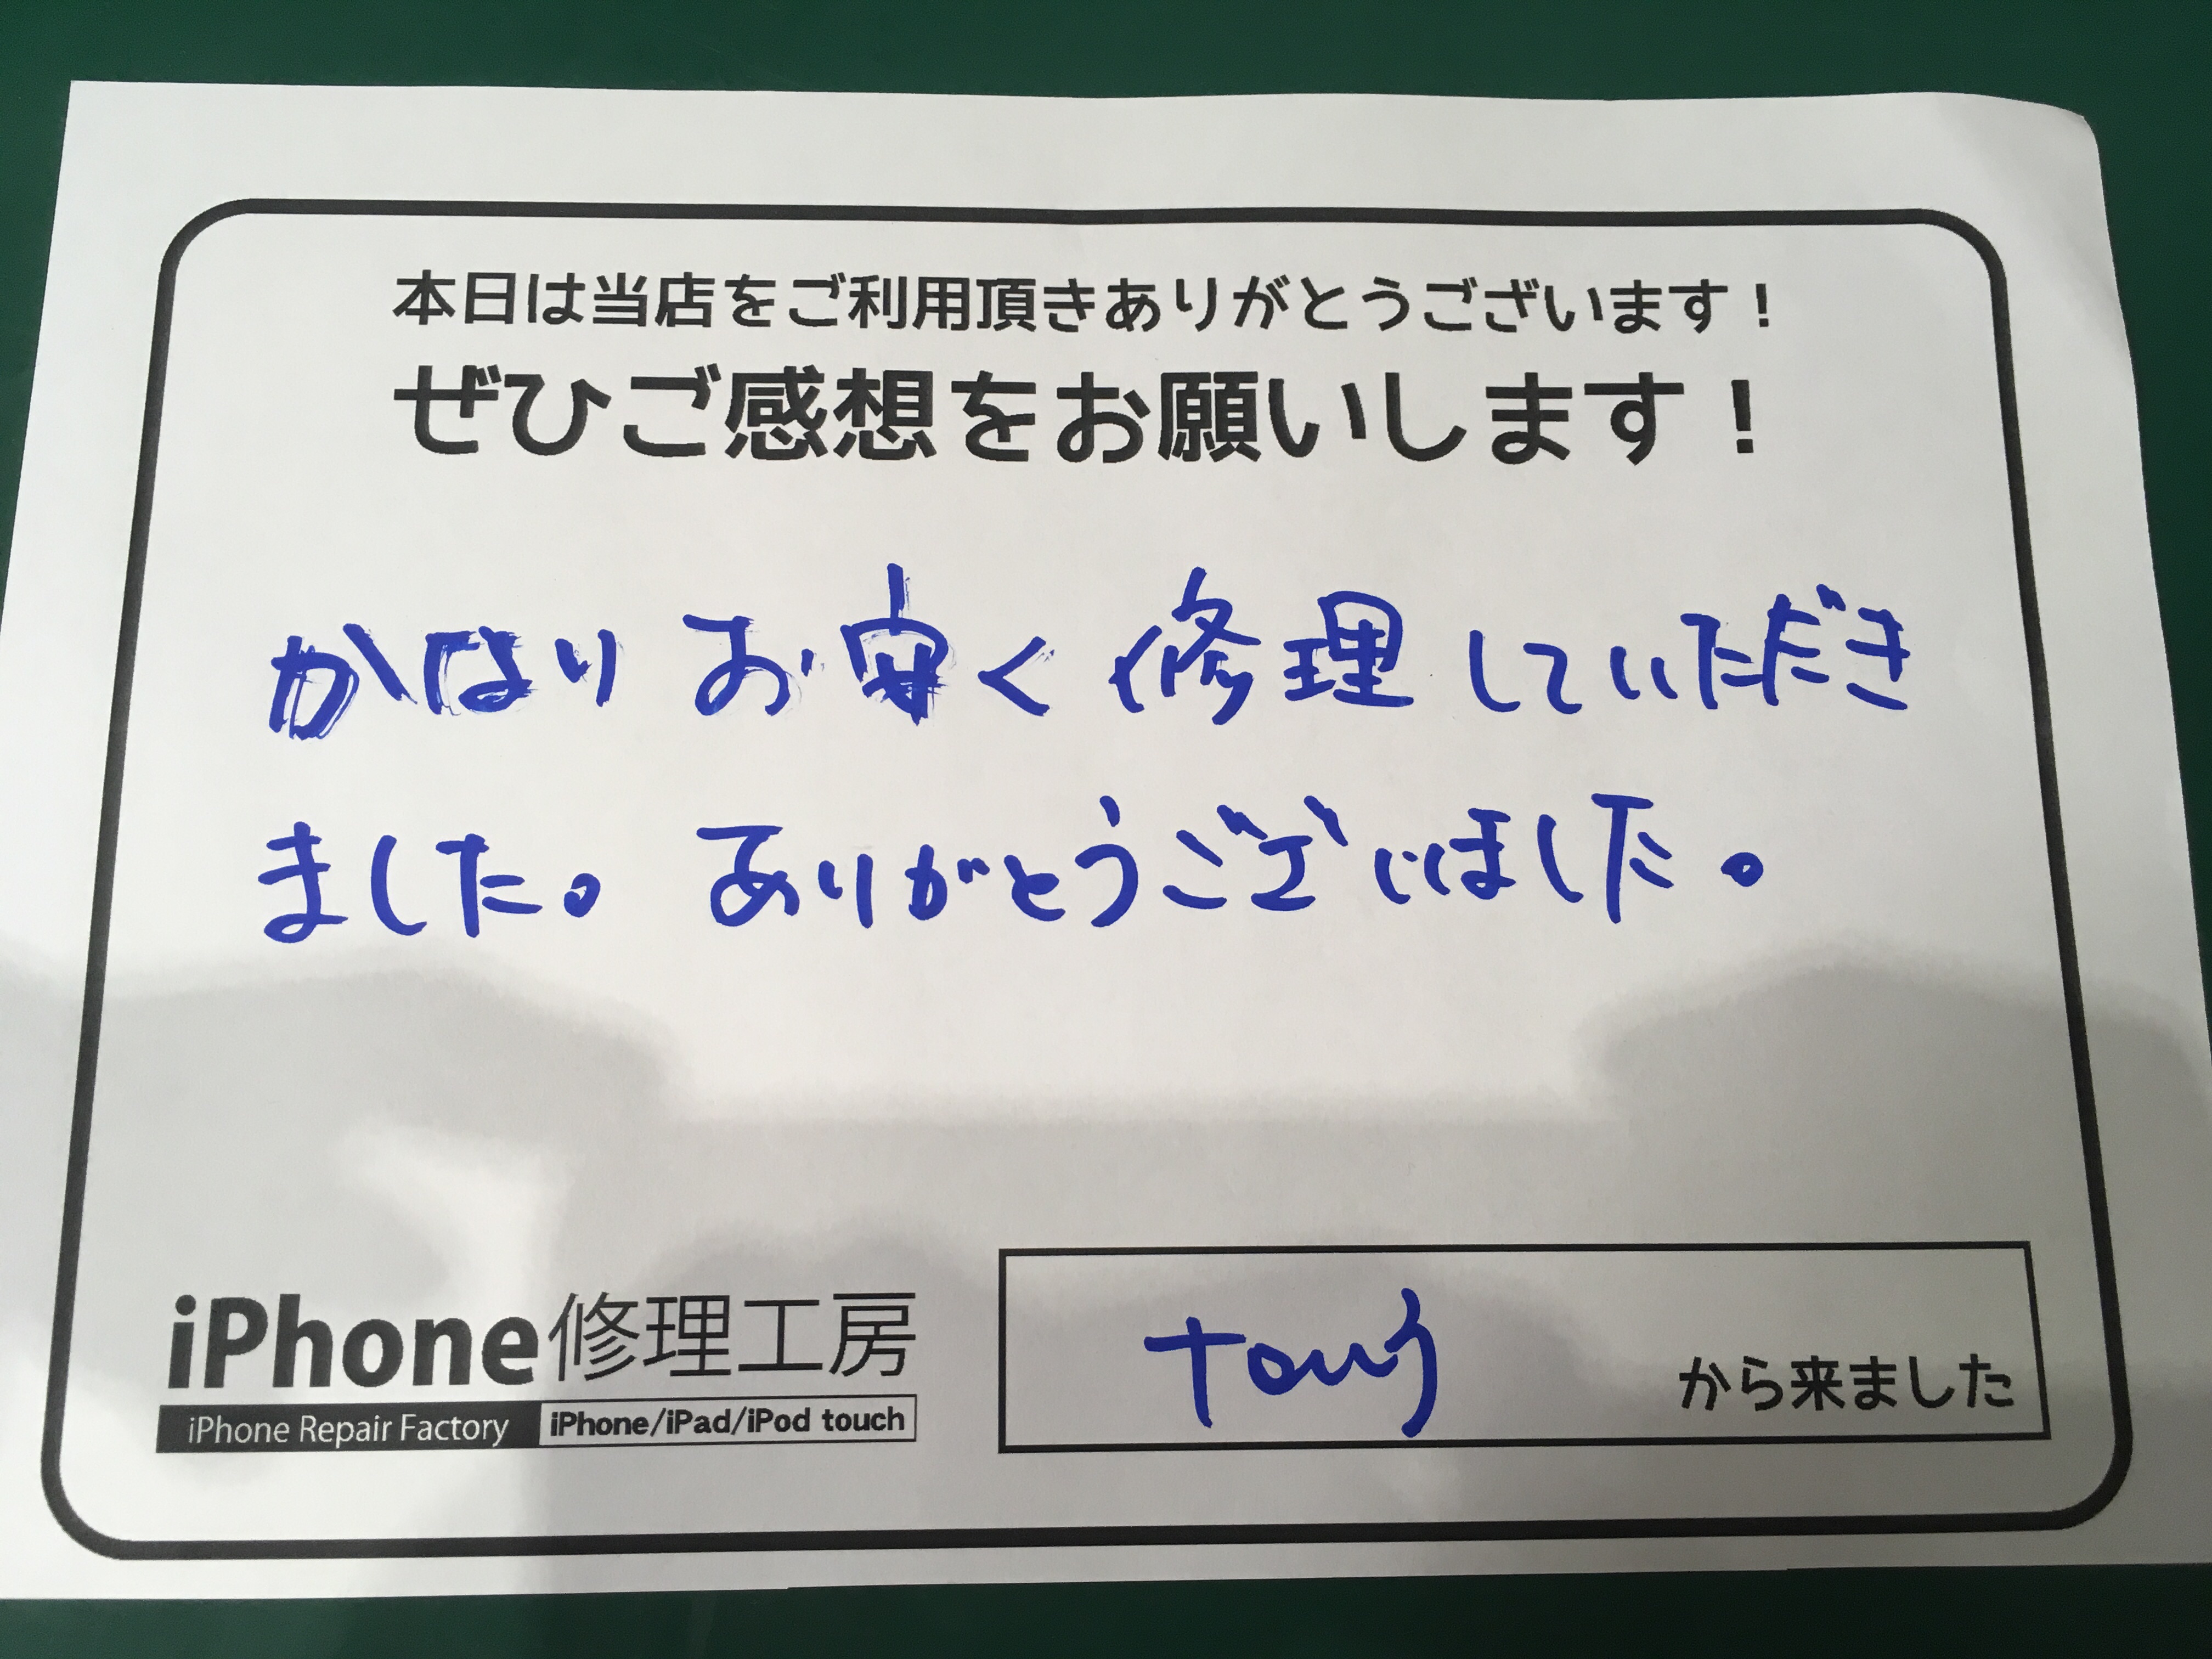 本日は当店をご利用頂きありがとうございます！
ぜひご感想をお願いします！
かなりお安く修理していただき
ました。ありがとうございました。
iPhone修理工房
iPhone Repair Factory iPhone/iPad/iPod touch
から来ました